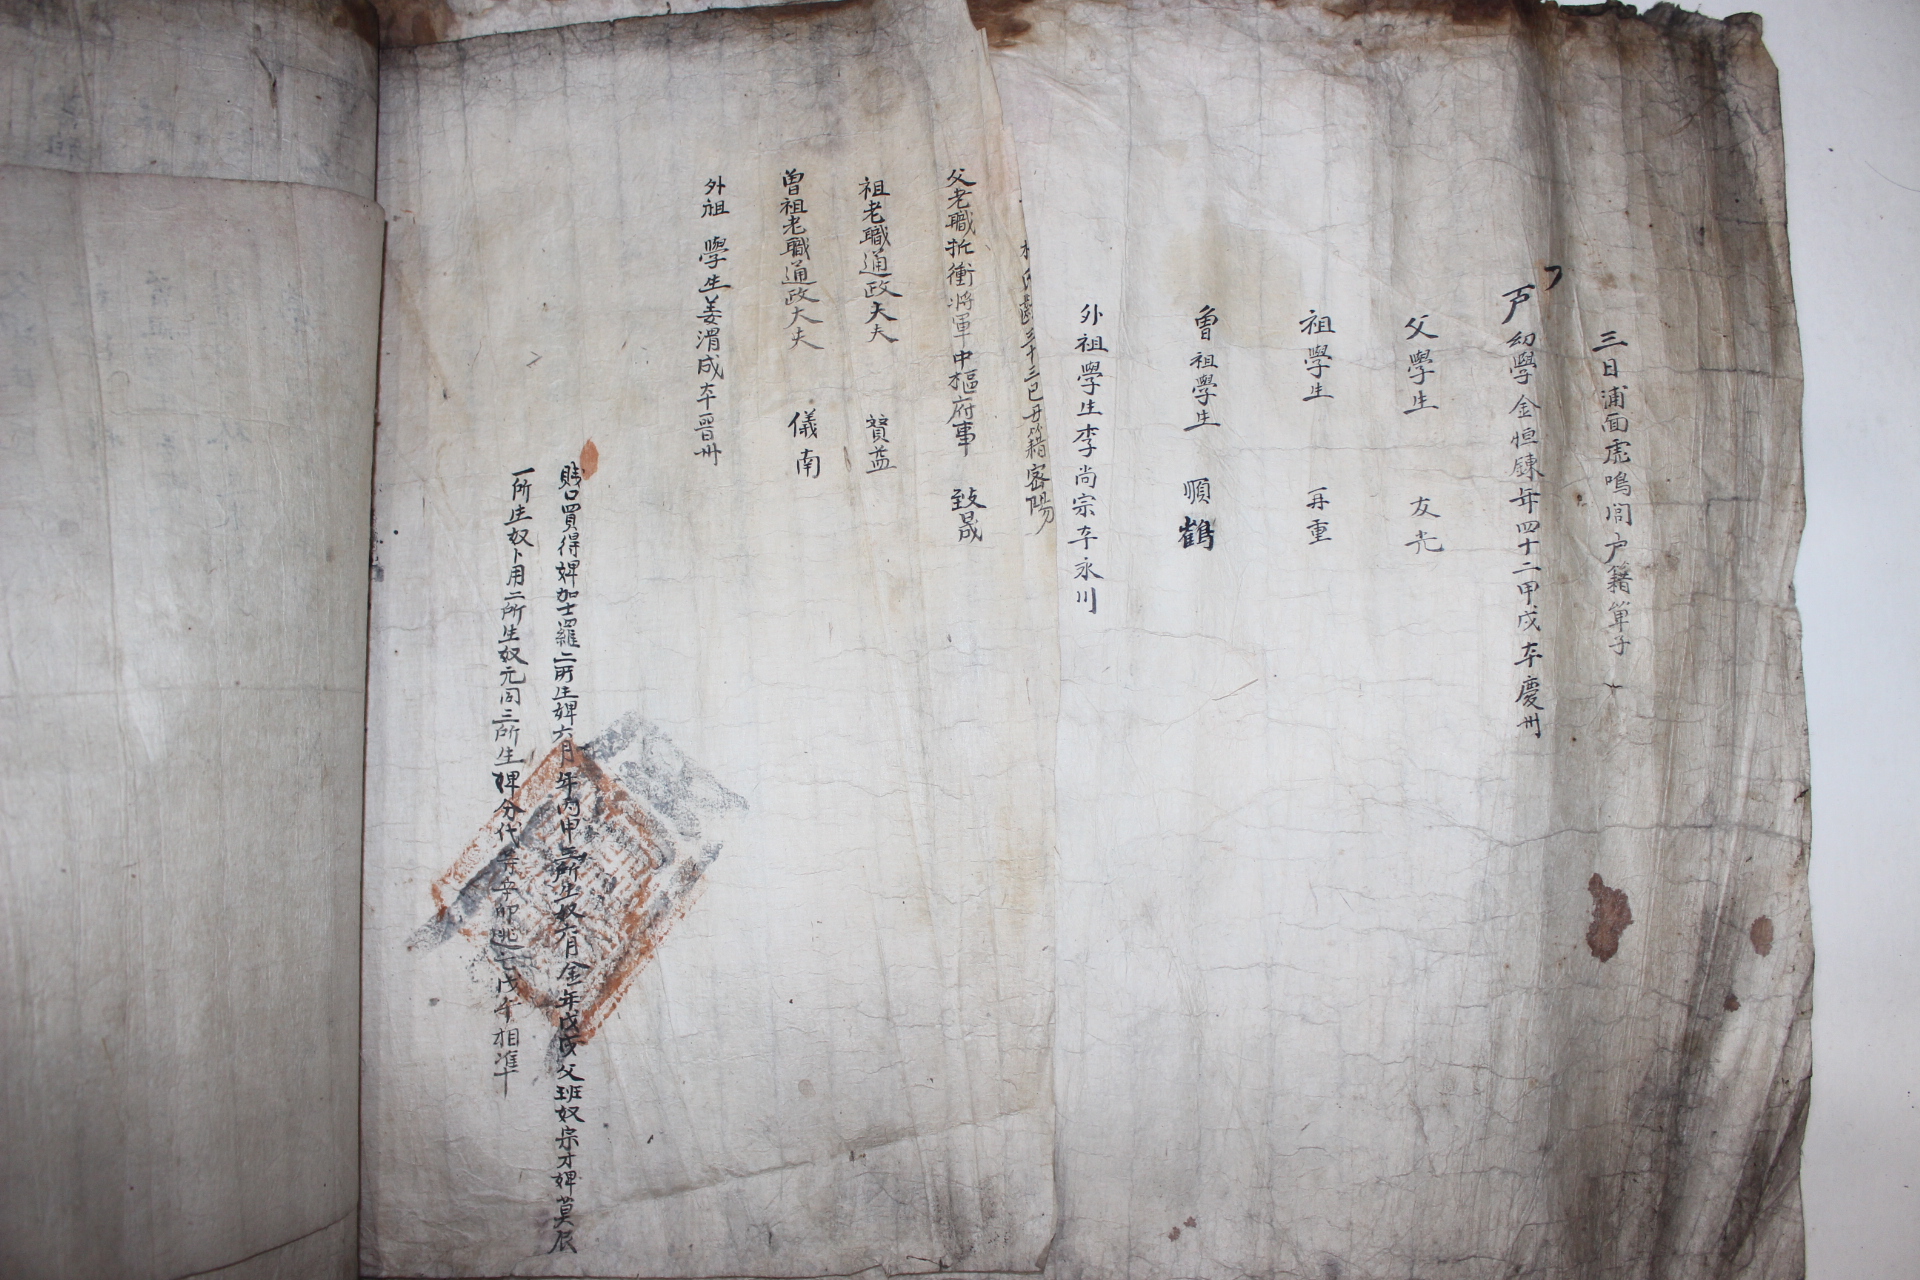 三日浦面虎鳴間戶籍單子
戶幼學金恒鍊年四十二甲戌本慶州
父學生 友光
祖學生 再重
曾祖學生 順鶴
外祖學生李尚宗本永川
氏齡三十三己丑籍密陽
父老職折衝將軍中樞府事 致晟
祖老職通政大夫 贊益
曾祖老職通政大夫 儀南
外祖 學生姜渭成本晋州
賎口買得婢加士羅二所生婢六月年丙申三所生奴六月金年戊戌父班奴宗才婢莫辰
一所生奴卜用二所生奴元同三所生婢分代等辛卯逃亡戊午相準